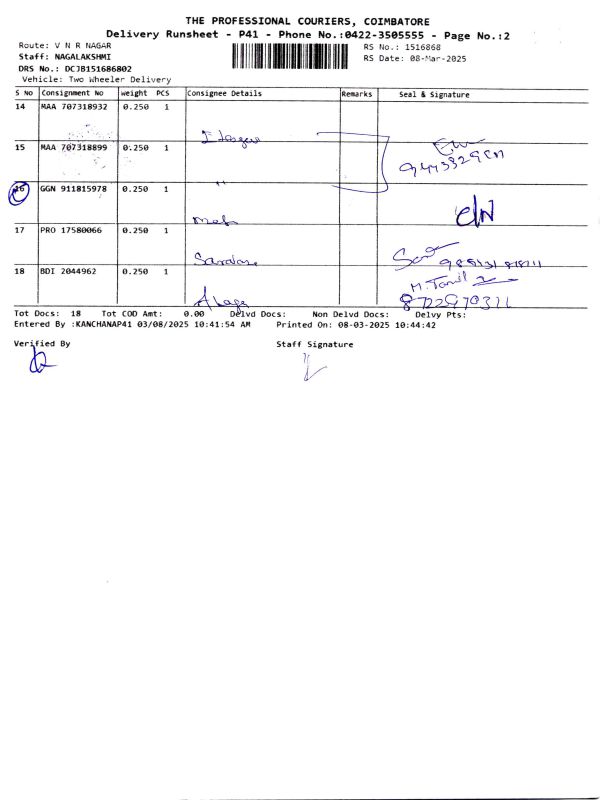 THE PROFESSIONAL COURIERS, COIMBATORE
Delivery Runsheet - P41 - Phone No.:0422-3505555 - Page No.:2
Route: V N R NAGAR RS No.: 1516868
Staff: NAGALAKSHMI RS Date: 08-Mar-2025
DRS No.: DCJB151686802
Vehicle: Two Wheeler Delivery
S No Consignment No weight PCS Consignee Details Remarks Seal & Signature
14 MAA 707318932 0.250 1
15 MAA 707318899 0.250 1
16 GGN 911815978 0.250 1
17 PRO 17580066 0.250 1
18 BDI 2044962 0.250 1
M. Tamil
Tot Docs: 18 Tot COD Amt: 0.00 Delvd Docs: Non Delvd Docs: Delvy Pts:
Entered By :KANCHANAP41 03/08/2025 10:41:54 AM Printed On: 08-03-2025 10:44:42
Verified By Staff Signature